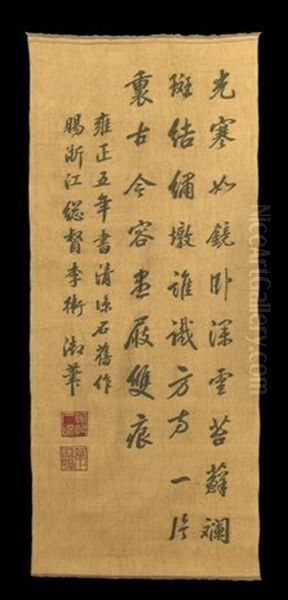 光寒如鏡臥深雲苔蘚斕
斑結繡墩誰識方方一片
裏古今容盡屐雙痕
雍正五年書清涼石舊作
賜浙江總督李衛 御筆